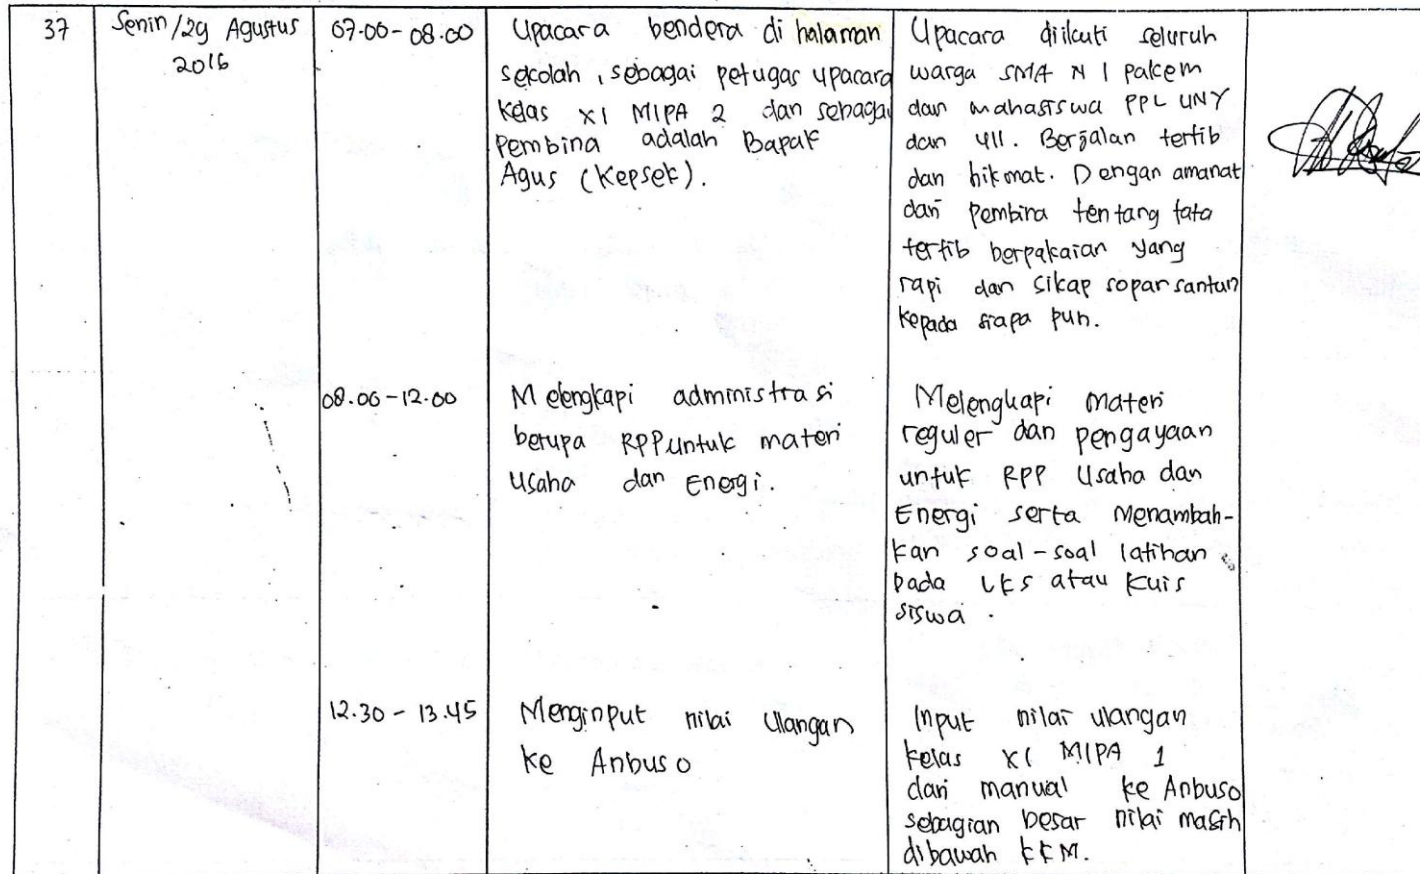 37
Senin/29 Agustus
2016
07.00 - 08.00
Upacara bendera di halaman
sekolah, sebagai petugas upacara
kelas XI MIPA 2 dan sebagai
Pembina adalah Bapak
Agus (Kepsek).
Upacara diikuti seluruh
warga SMA N 1 pakem
dan mahasiswa PPL UNY
dan UII. Berjalan tertib
dan hikmat. Dengan amanat
dari Pembina tentang tata
tertib berpakaian yang
rapi dan sikap sopan santun
kepada siapa pun.
08.00 - 12.00
Melengkapi administrasi
berupa RPP untuk materi
Usaha dan Energi.
Melengkapi materi
reguler dan pengayaan
untuk RPP Usaha dan
Energi serta Menambah-
kan soal-soal latihan
pada LKS atau kuis
siswa.
12.30 - 13.45
Menginput nilai Ulangan
ke Anbuso
Input nilai ulangan
kelas XI MIPA 1
dari manual ke Anbuso
sebagian besar nilai masih
dibawah KKM.